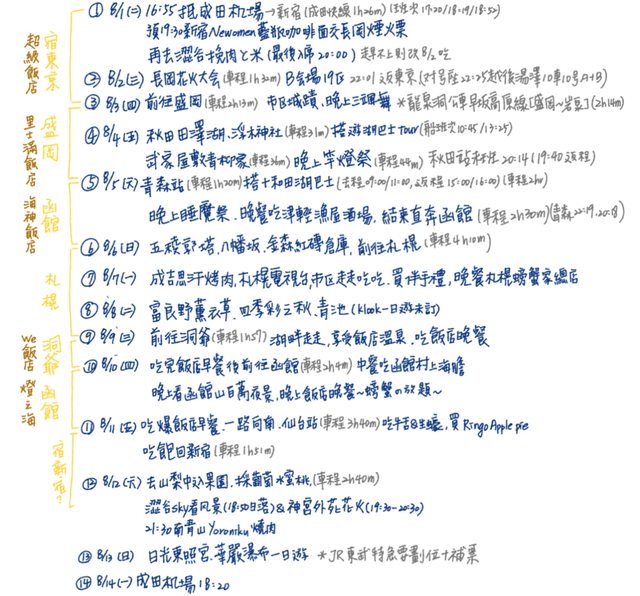 ① 8/1(二) 16:55 抵成田机場→新宿(成田快線1h26m)(班次17:20/18:19/18:52)
預19:30新宿Newoman藍瓶咖啡面交長岡煙火票
再去澀谷挽肉と米(最後入席20:00) 趕不上則改8/2吃
② 8/2(三) 長岡花火大会(車程1h32m) B会場19区 22:01返東京(対号座22:25越後湯澤10車10号A+B)
③ 8/3(四) 前往盛岡(車程2h13m) 市区城蹟、晚上三颯舞 *龍泉洞公車早坂高原線[盛岡~岩泉](2h14m)
④ 8/4(五) 秋田田澤湖.浮木神社(車程31m)搭遊湖巴士Tour(船班次10:45/13:25)
武家屋敷青柳家(車程36m)晚上竿燈祭(車程44m)秋田站 20:14(19:40返程)
⑤ 8/5(六)青森站(車程1h20m)搭十和田湖巴士(去程09:00/11:00,返程15:00/16:00)(車程2hr)
晚上睡魔祭.晚餐吃津軽漁屋酒場,結束直奔函館(車程2h30m)(青森22:19.20:18)
⑥ 8/6(日) 五稜郭塔.八幡坂.金森紅磚倉庫.前往札幌(車程4h10m)
⑦ 8/7(一) 成吉思汗烤肉.札幌電視台.市区走走吃吃.買伴手禮,晚餐札幌螃蟹家總店
⑧ 8/8(二) 富良野薰衣草.四季彩之秋.青池(Klook一日遊未訂)
⑨ 8/9(三) 前往洞爺(車程1h57)湖畔走走,享受飯店溫泉.吃飯店晚餐
⑩ 8/10(四) 吃完飯店早餐後前往函館(車程2h4m)中餐吃函館村上海膽
晚上看函館山百萬夜景,晚上飯店晚餐~螃蟹の放題~
⑪ 8/11(五)吃爆飯店早餐.一路向南.仙台站(車程3h40m)吃牛舌&生蠔,買RingoApple pie
吃飽回新宿(車程1h51m)
⑫ 8/12(六)去山梨中込果園.採葡萄水蜜桃.(車程2h40m)
澀谷sky看風景(18:50日落)&神宮外苑花火(19:30-20:30)
21:30南青山Yoroniku燒肉
⑬ 8/13(日) 日光東照宮.華嚴瀑布一日遊 *JR東武特急要劃位+補票
⑭ 8/14(一)成田机場18:20
宿東京
超級飯店
盛岡
里士滿飯店
函館
海神飯店
札幌
洞爺
We飯店
函館
燈之海
宿新宿?